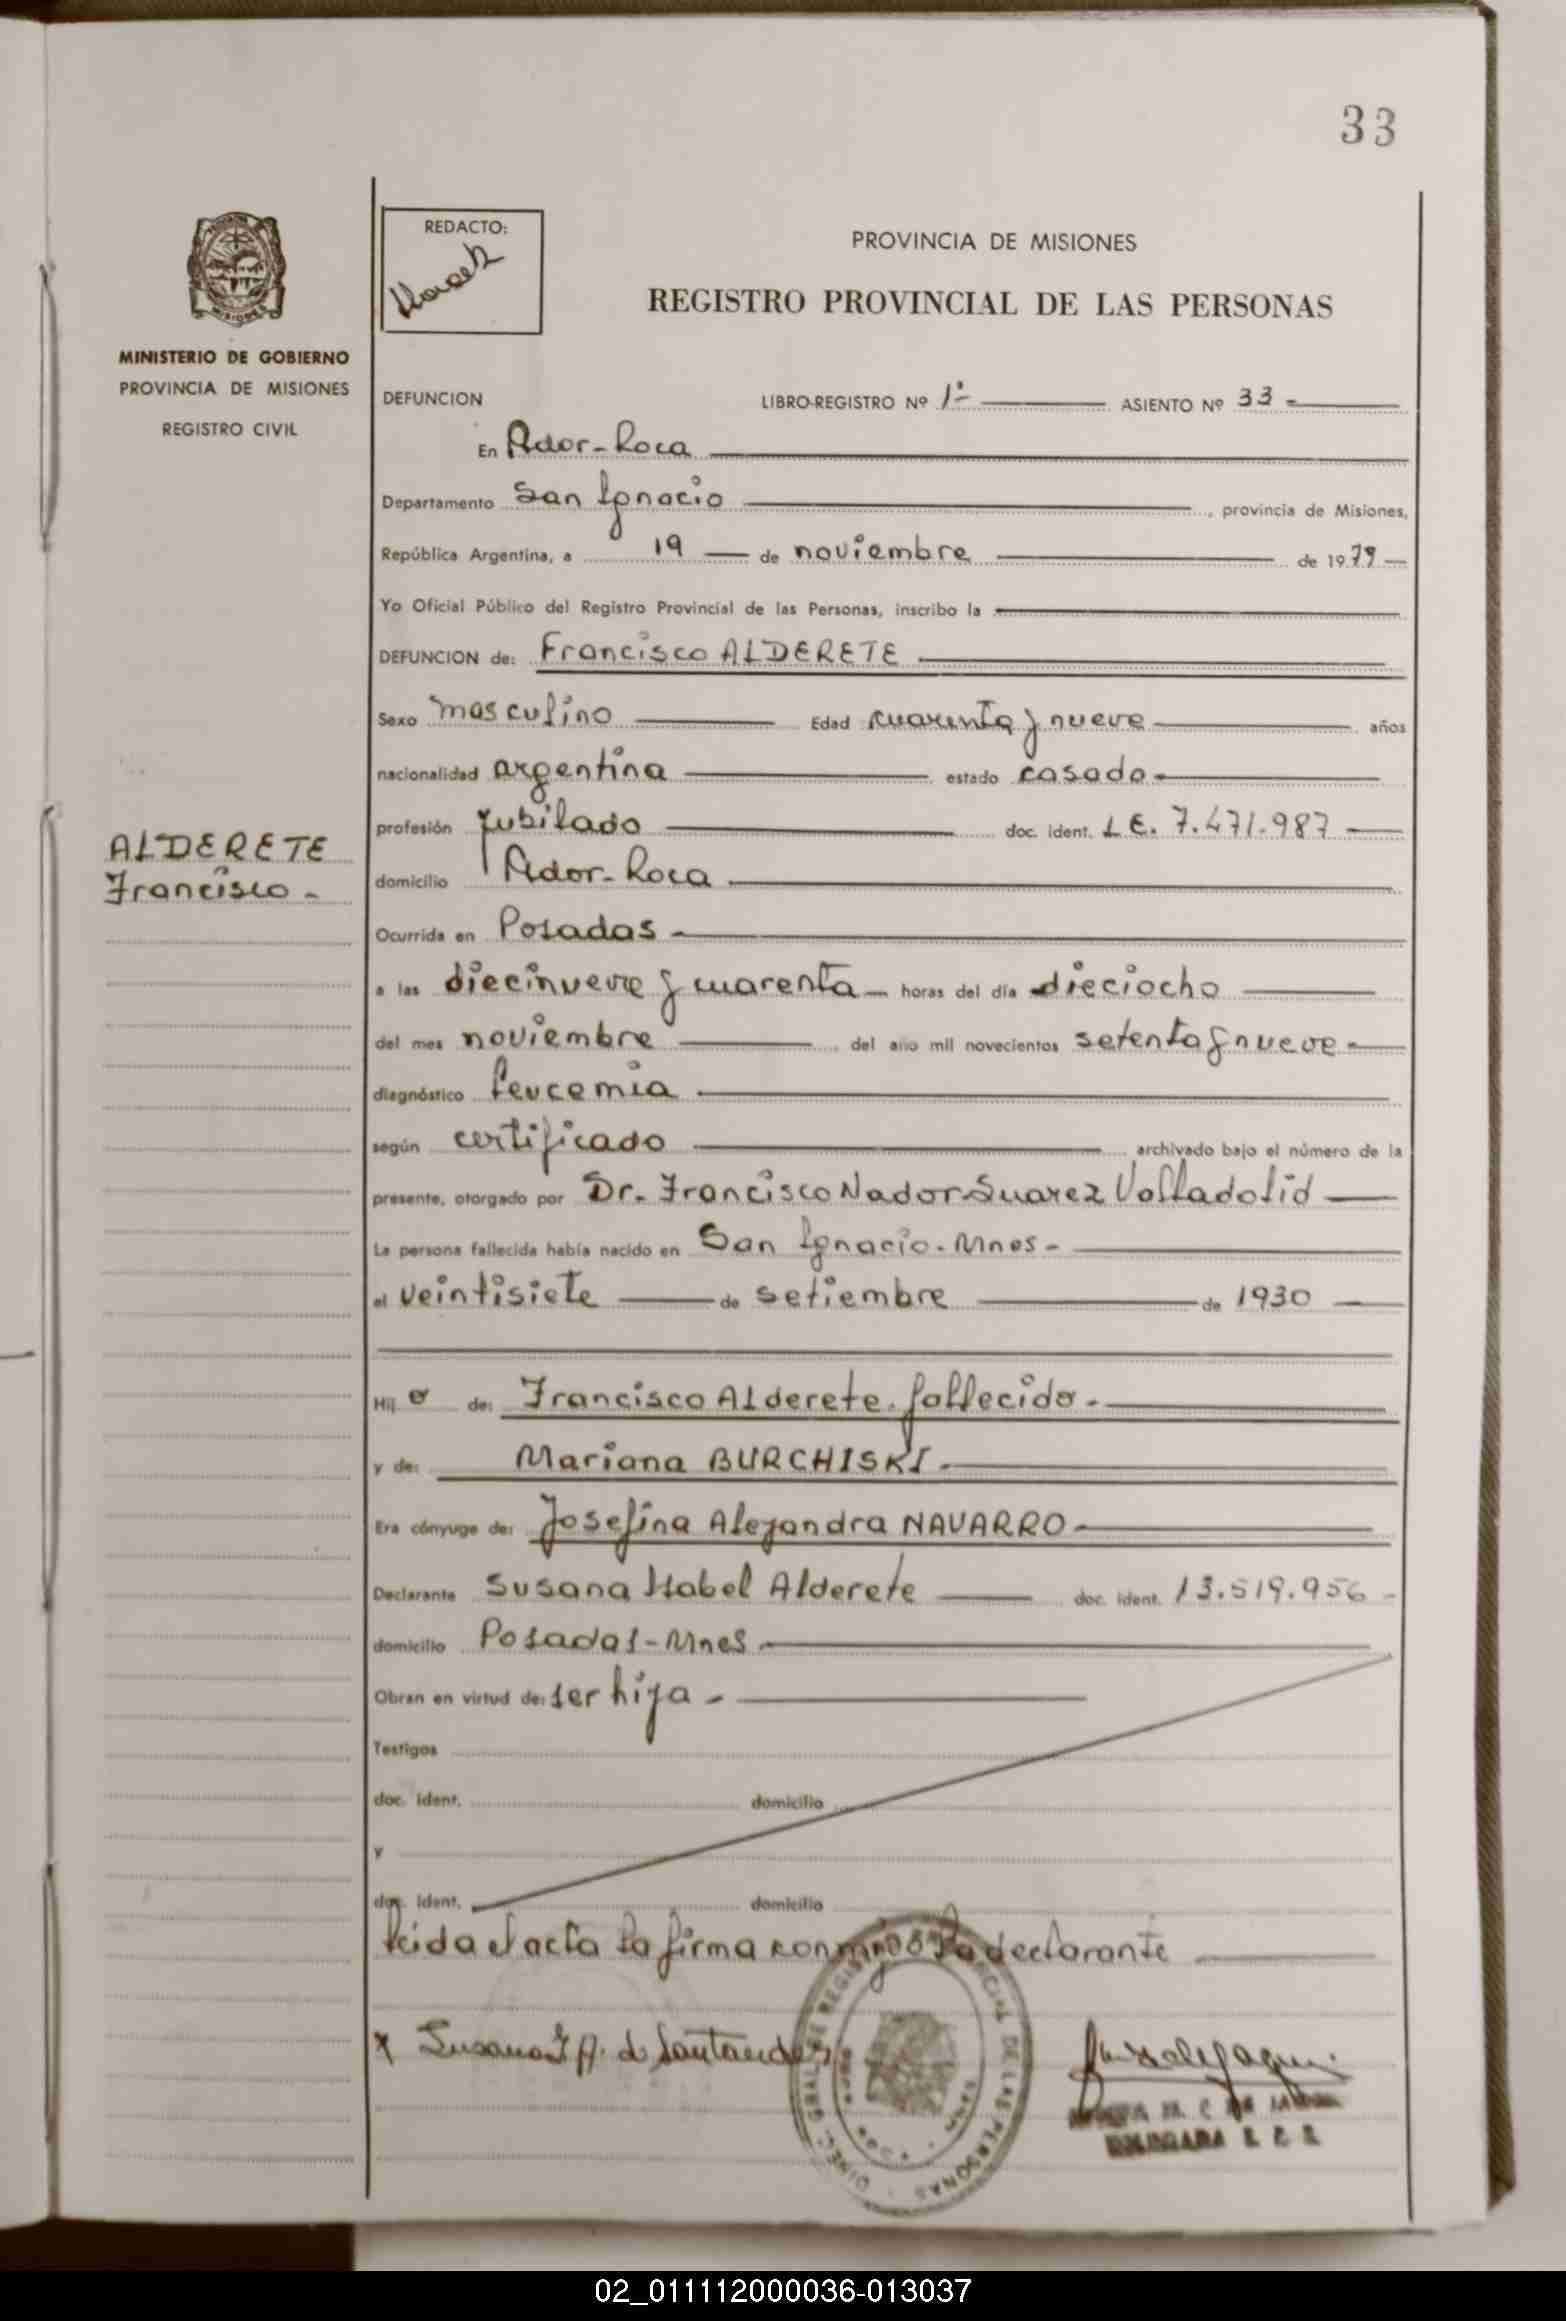 33
REDACTO:
PROVINCIA DE MISIONES
REGISTRO PROVINCIAL DE LAS PERSONAS
MINISTERIO DE GOBIERNO
PROVINCIA DE MISIONES
REGISTRO CIVIL
DEFUNCION LIBRO-REGISTRO Nº 1º ASIENTO Nº 33
En Ador-Roca
Departamento San Ignacio, provincia de Misiones,
República Argentina, a 19 de noviembre de 1979
Yo Oficial Público del Registro Provincial de las Personas, inscribo la
DEFUNCION de: Francisco ALDERETE
Sexo masculino Edad cuarenta y nueve años
nacionalidad argentina estado casado
profesión jubilado doc. ident. L E. 7.471.987
ALDERETE
Francisco -
domicilio Ador-Roca
Ocurrida en Posadas
a las diecinueve y cuarenta horas del día dieciocho
del mes noviembre del año mil novecientos setenta y nueve
diagnóstico leucemia
según certificado archivado bajo el número de la
presente, otorgado por Dr. Francisco Nador Suarez Valladolid
La persona fallecida había nacido en San Ignacio - Mnes -
el veintisiete de setiembre de 1930
Hij o de: Francisco Alderete. fallecido -
y de: Mariana BURCHISKI
Era cónyuge de: Josefina Alejandra NAVARRO
Declarante Susana Isabel Alderete doc. ident. 13.519.956 -
domicilio Posadas - Mnes
Obran en virtud de: ser hija -
Testigos
doc. ident. domicilio
y
doc. ident. domicilio
leida el acta la firma conmigo la declarante
x Susana I A. de Santander
DE LAS PERSONAS
02_011112000036-013037